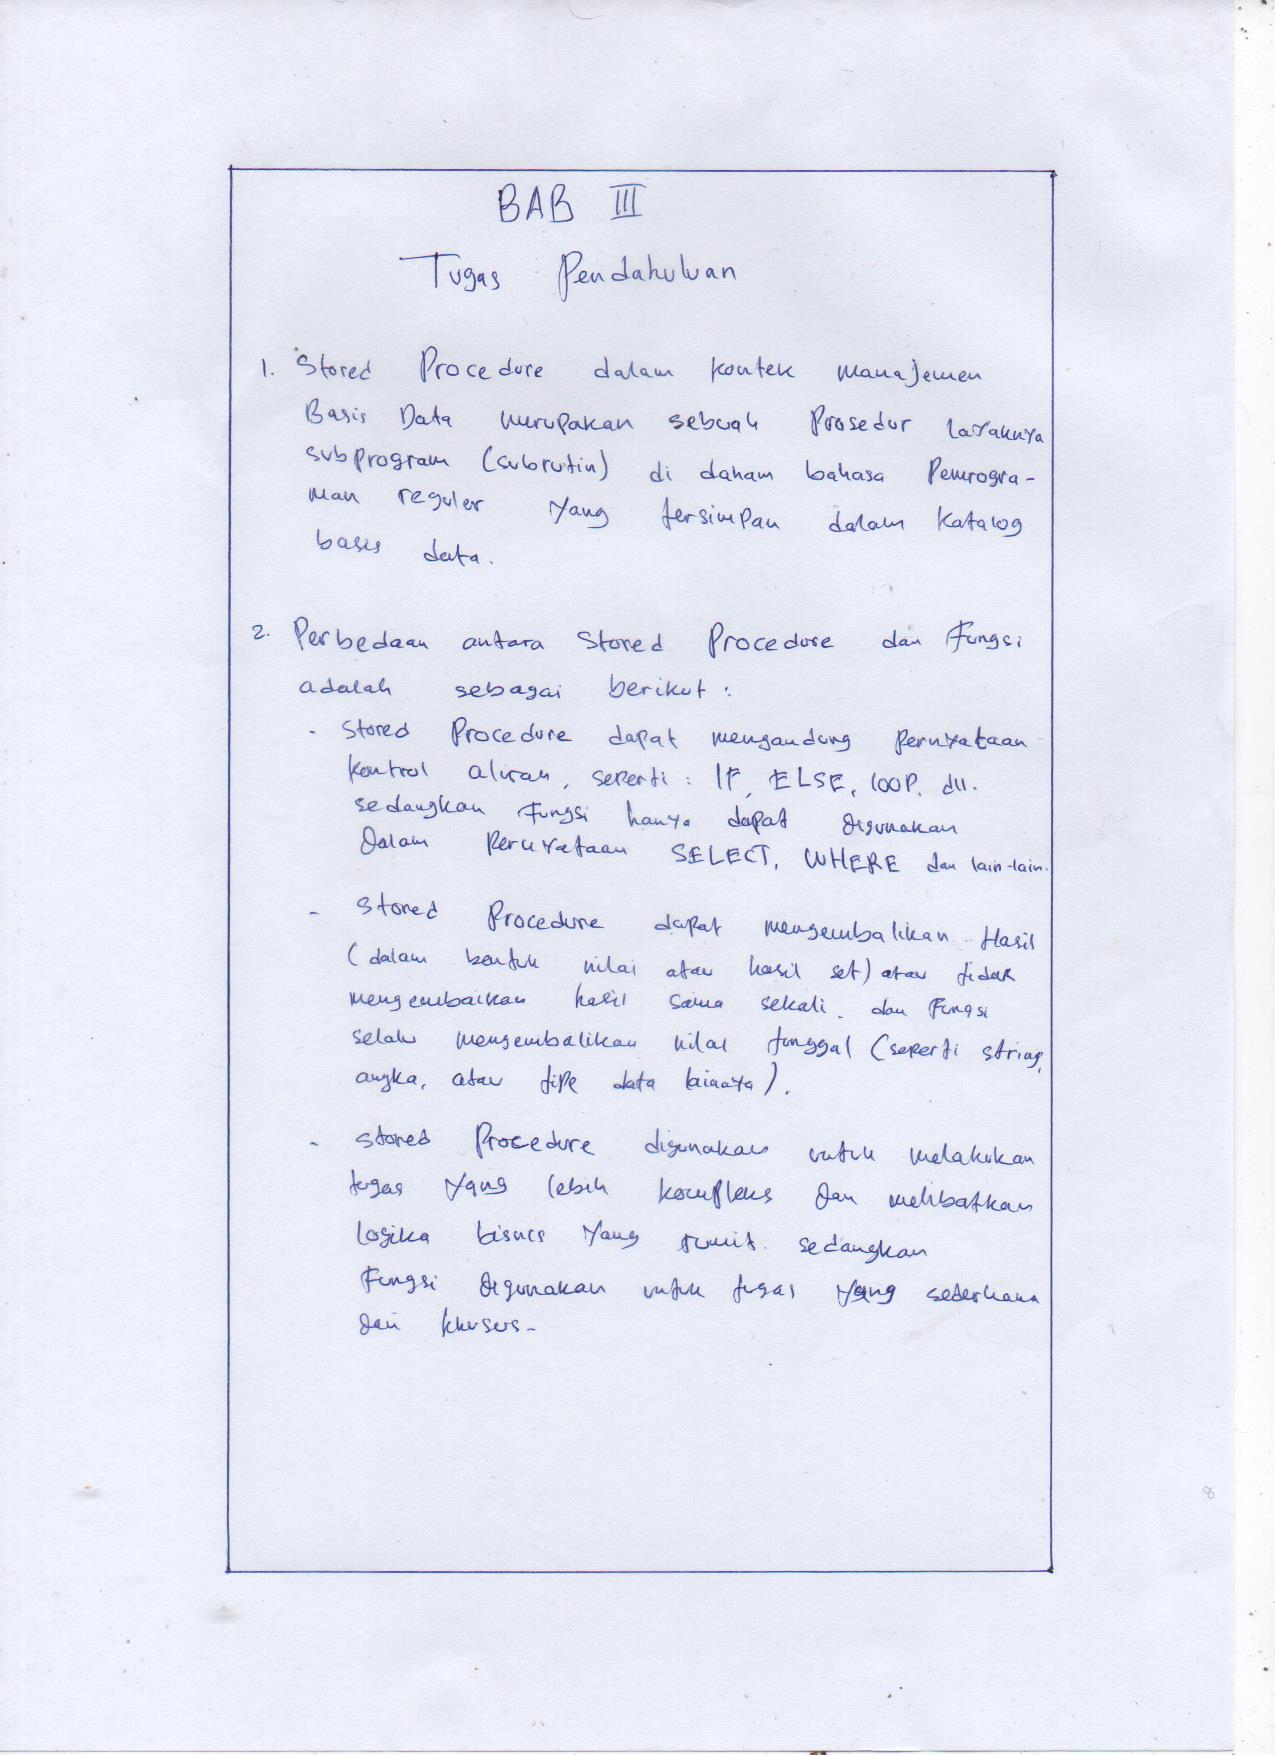 BAB III
Tugas Pendahuluan
1. Stored Procedure dalam kontek manajemen
Basis Data merupakan sebuah Prosedur layaknya
subprogram (subrutin) di dalam bahasa Pemrogra-
man reguler yang tersimpan dalam katalog
basis data.
2. Perbedaan antara Stored Procedure dan Fungsi
adalah sebagai berikut :
- Stored Procedure dapat mengandung pernyataan
kontrol aliran, seperti : IF, ELSE, LOOP, dll.
sedangkan Fungsi hanya dapat digunakan
dalam Pernyataan SELECT, WHERE dan lain-lain.
- Stored Procedure dapat mengembalikan Hasil
(dalam bentuk nilai atau hasil set) atau tidak
mengembalkan hasil sama sekali. dan Fungsi
selalu mengembalikan nilai tunggal (seperti string,
angka, atau tipe data lainnya).
- Stored Procedure digunakan untuk melakukan
tugas yang lebih kompleks dan melibatkan
logika bisnis yang rumit. sedangkan
Fungsi digunakan untuk tugas yang sederhana
dan khusus.
8